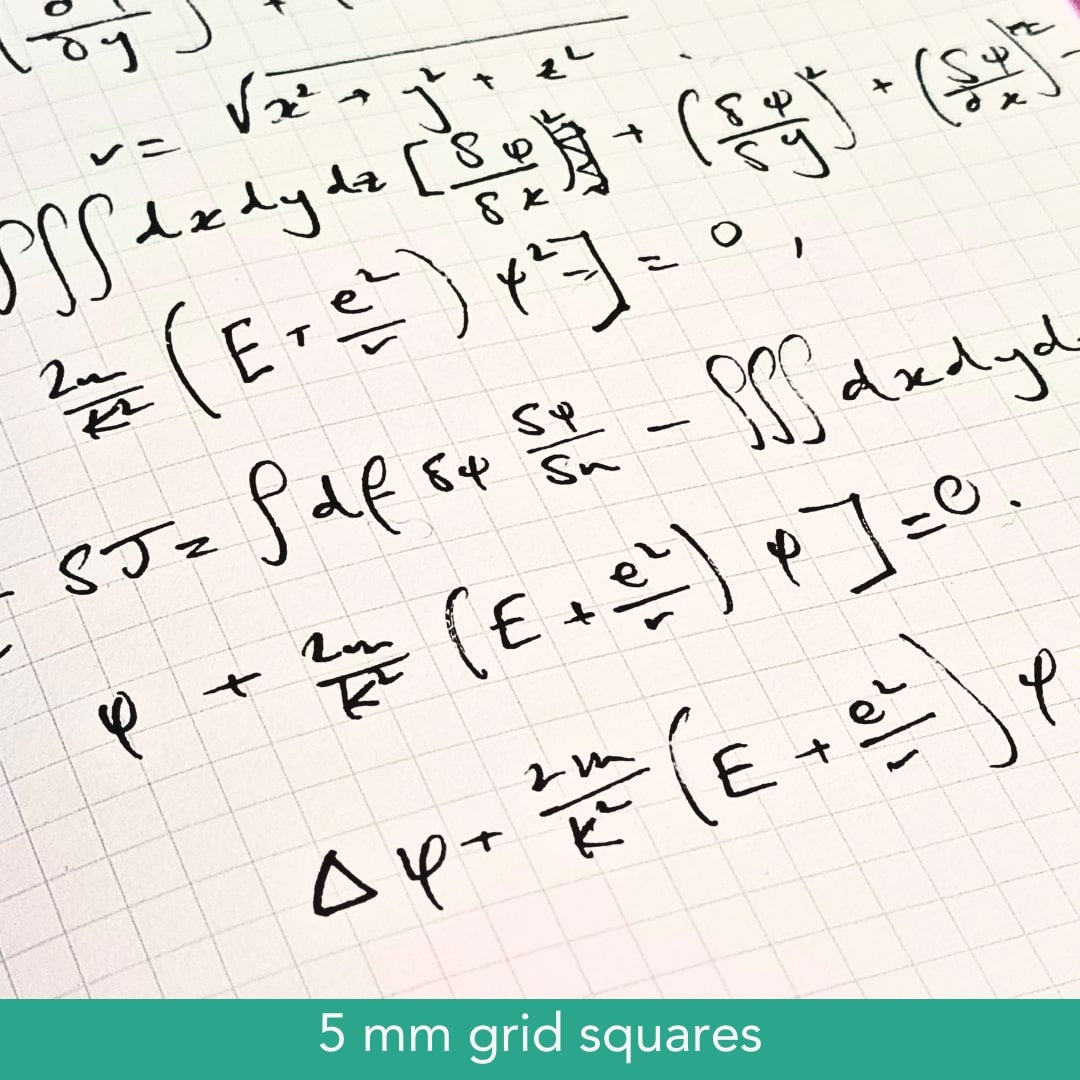 (∂ / ∂y) + (
r = √x² + y² + z²
∫∫∫ dx dy dz [δφ/δx)² + (δψ/δy)² + (δψ/∂x)² -
2m/K² (E + e²/r) ψ² =] = 0 ,
δJ = ∫ df δψ δφ/δn - ∫∫∫ dx dy d
φ + 2m/K² (E + e²/r) φ] = 0 .
Δ φ + 2m/K² (E + e²/r) φ
5 mm grid squares